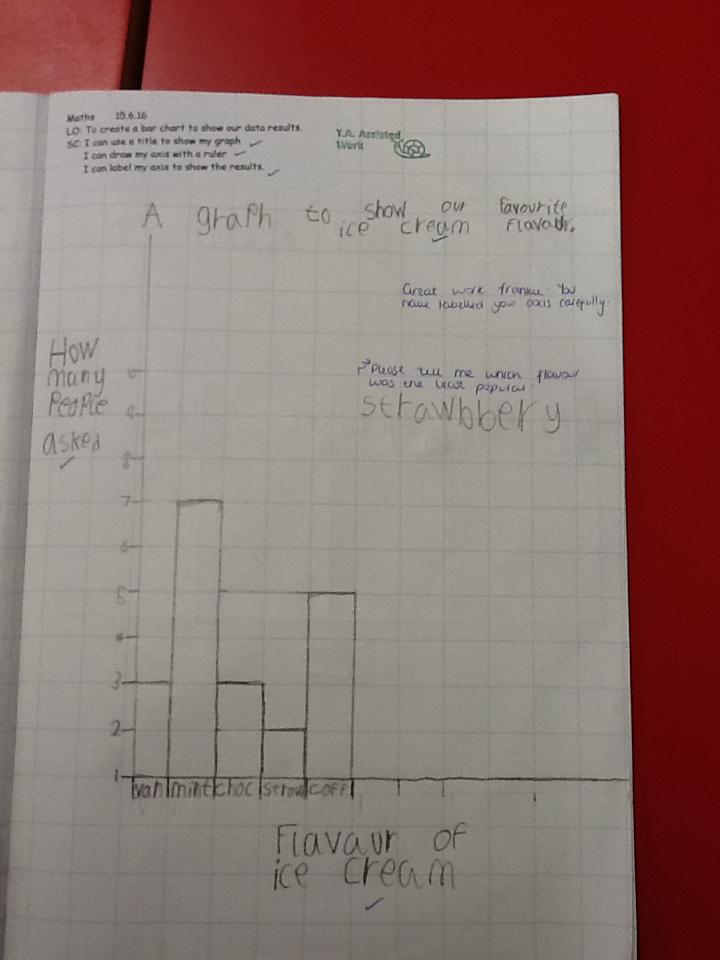 Maths 15.6.16
LO: To create a bar chart to show our data results.
SC: I can use a title to show my graph
I can draw my axis with a ruler
I can label my axis to show the results.
T.A. Assisted
Work
A graph to show our favourite
ice cream flavaur.
Great work frankie. You
have labelled your axis carefully.
How
many
PeoPle
asked
Please tell me which flavour
was the least popular.
strawbbery
9
8
7
6
5
4
3
2
1
van mint choc straw coff
Flavaur of
ice cream